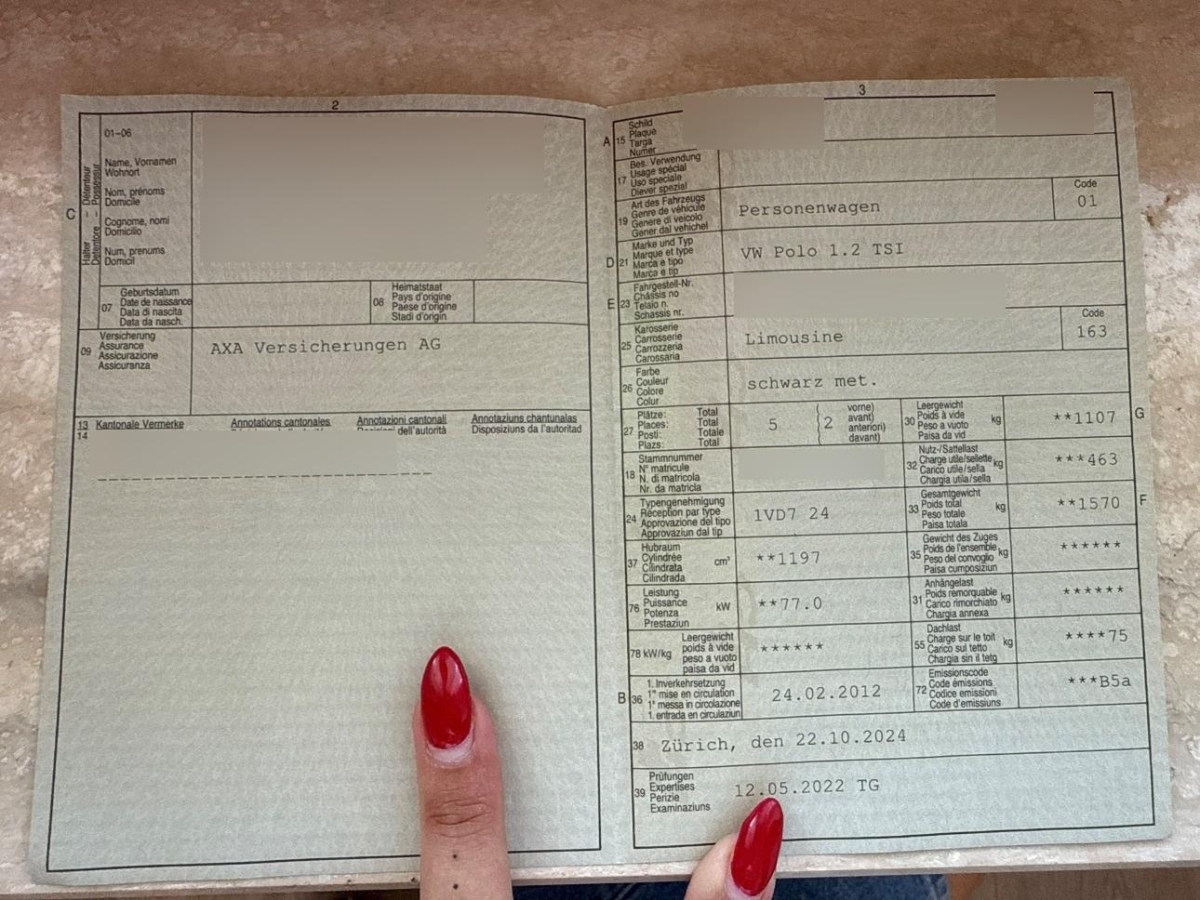 2
01–06
Name, Vornamen
Wohnort
Nom, prénoms
Domicile
Cognome, nomi
Domicilio
Num, prenums
Domicil
C
Halter – Détenteur
Detentore – Possessur
07
Geburtsdatum
Date de naissance
Data di nascita
Data da nasch.
08
Heimatstaat
Pays d'origine
Paese d'origine
Stadi d'origin
09
Versicherung
Assurance
Assicurazione
Assicuranza
AXA Versicherungen AG
13
14
Kantonale Vermerke
Annotations cantonales
Annotazioni cantonali
dell'autorità
Annotaziuns chantunalas
Disposiziuns da l'autoritad
3
A
15
Schild
Plaque
Targa
Numer
17
Bes. Verwendung
Usage spécial
Uso speciale
Diever spezial
19
Art des Fahrzeugs
Genre de véhicule
Genere di veicolo
Gener dal vehichel
Personenwagen
Code
01
D
21
Marke und Typ
Marque et type
Marca e tipo
Marca e tip
VW Polo 1.2 TSI
E
23
Fahrgestell-Nr.
Châssis no
Telaio n.
Schassis nr.
25
Karosserie
Carrosserie
Carrozzeria
Carossaria
Limousine
Code
163
26
Farbe
Couleur
Colore
Colur
schwarz met.
27
Plätze: Total
Places: Total
Posti: Totale
Plazs: Total
5
2
vorne)
avant)
anteriori)
davant)
30
Leergewicht
Poids à vide
Peso a vuoto
Paisa da vid
kg
**1107
G
18
Stammnummer
N° matricule
N. di matricola
Nr. da matricla
32
Nutz-/Sattellast
Charge utile/sellette
Carico utile/sella
Chargia utila/sella
kg
***463
24
Typengenehmigung
Réception par type
Approvazione del tipo
Approvaziun dal tip
1VD7 24
33
Gesamtgewicht
Poids total
Peso totale
Paisa totala
kg
**1570
F
37
Hubraum
Cylindrée
Cilindrata
Cilindrada
cm³
**1197
35
Gewicht des Zuges
Poids de l'ensemble
Peso del convoglio
Paisa cumposiziun
kg
******
76
Leistung
Puissance
Potenza
Prestaziun
kW
**77.0
31
Anhängelast
Poids remorquable
Carico rimorchiato
Chargia annexa
kg
******
78 kW/kg
Leergewicht
poids à vide
peso a vuoto
paisa da vid
******
55
Dachlast
Charge sur le toit
Carico sul tetto
Chargia sin il tetg
kg
****75
B
36
1. Inverkehrsetzung
1re mise en circulation
1a messa in circolazione
1. entrada en circulaziun
24.02.2012
72
Emissionscode
Code émissions
Codice emissioni
Code d'emissiuns
***B5a
38
Zürich, den 22.10.2024
39
Prüfungen
Expertises
Perizie
Examinaziuns
12.05.2022 TG